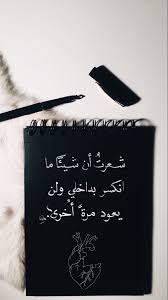 شعرتُ أن شيئًا ما
انكسر بداخلي ولن
يعود مرةً أُخرى.